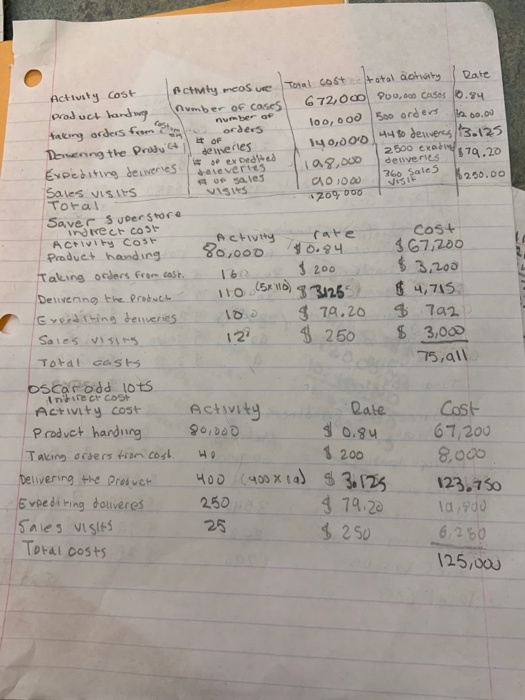 Activity Cost Activity measure Total cost total activity Rate
Product handing number of cases 672,000 800,000 cases $0.84
taking orders from number of orders 100,000 500 orders $200.00
Delivering the Product # of deliveries 140,000 4480 deliverys $3.125
Expediting deliveries # of expedited deleveries 198,000 2500 deliveries $79.20
Sales visits # of sales visits 90,000 360 sales visit $250.00
Total 1209,000
Saver Superstore
indirect cost
Activity Cost Activity rate Cost
Product handing 80,000 $0.84 $67,200
Taking orders from cost. 16 $200 $3,200
Delivering the Product 110 (5x110) $3.125 $4,715
Expediting deliveries 10 $79.20 $792
Sales visits 12 $250 $3,000
Total costs 75,911
Oscar odd lots
Indirect cost
Activity cost Activity Rate Cost
Product handling 80,000 $0.84 67,200
Taking orders from cost 40 $200 8,000
Delivering the Product 400 (400x10) $3.125 123.750
Expediting daliveres 250 $79.20 19,800
Sales visits 25 $250 6,250
Total costs 125,000